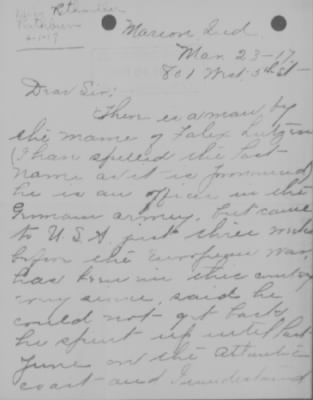 Marion Ind.
Mar. 23-17
801 West 5th St-
Dear Sir:
There is a man, by
the name of Falex
(I have spelled the last
name as it is pronounced)
he is an officer in the
German army, but came
to U.S.A. just three weeks
before the European War,
has been in this country
ever since, said he
could not get back
he spent up until last
June on the Atlantic
coast and I understand